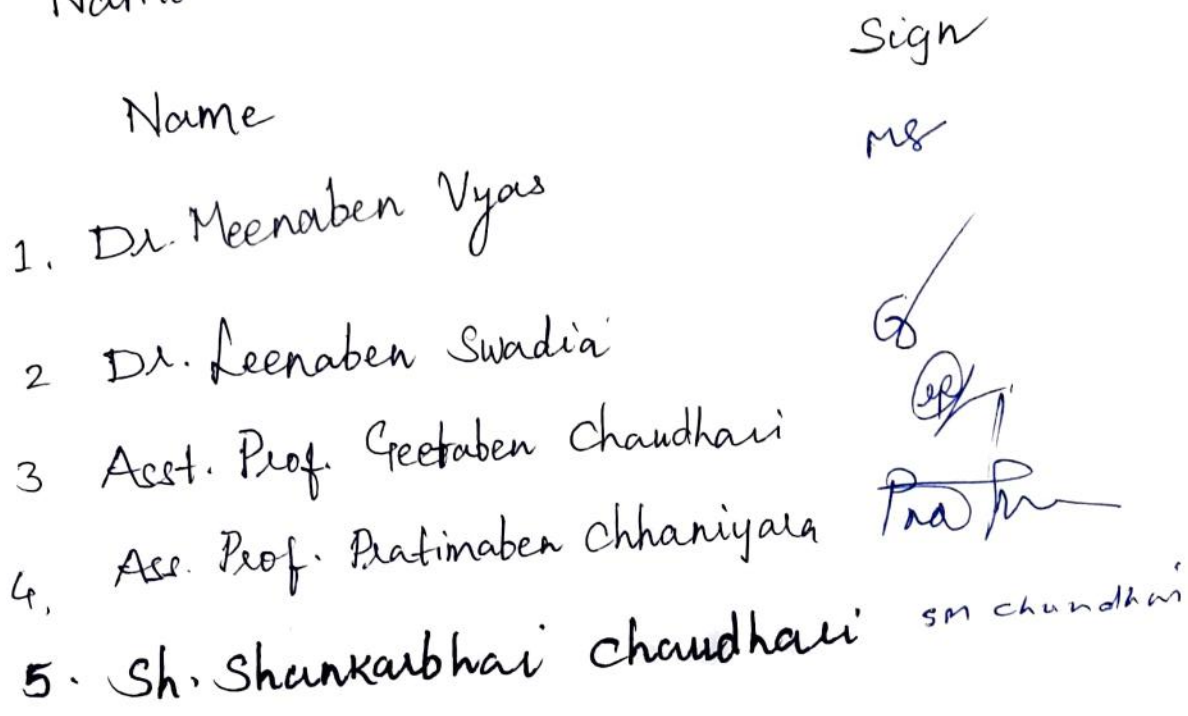 Name
Name Sign
1. Dr. Meenaben Vyas MS
2 Dr. Leenaben Swadia
3 Asst. Prof. Geetaben Chaudhari
4. Ass. Prof. Pratimaben Chhaniyara
5. Sh. Shankarbhai Chaudhari SM Chundhari